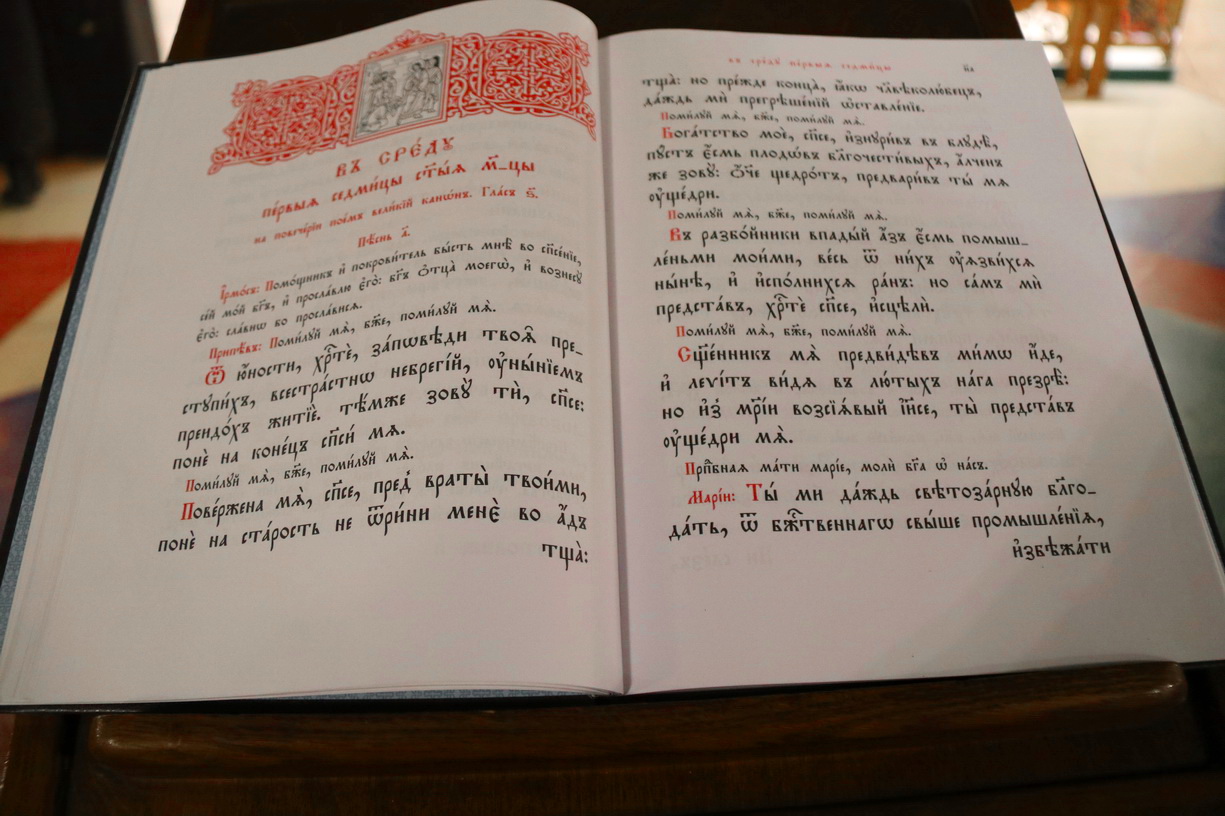 ВЪ СРЕ́ДꙊ
пе́рвыѧ седми́цы ст҃ы́ѧ м҃_цы
на повече́рїи пое́мъ вели́кїй канѡ́нъ. Гла́съ ѕ҃.
Пѣ́снь а҃.
І҆рмо́съ: Помо́щникъ и҆ покрови́тель бы́сть мнѣ̀ во сп҃се́нїе,
се́й мо́й бг҃ъ, и҆ просла́влю є҆го̀: бг҃ъ ѻ҆тца̀ моегѡ̀, и҆ вознесꙋ̀
є҆го̀: сла́внѡ во просла́висѧ.
Припѣ́въ: Поми́лꙋй мѧ̀, бж҃е, поми́лꙋй мѧ̀.
Ѿ ю҆́ности, хрⷭ҇тѐ, за́пѡвѣди твоѧ̑ пре_
стꙋпи́хъ, всестра́стнѡ небрегі́й, ᲂу҆ны́нїемъ
преидо́хъ житїѐ. тѣ́мже зовꙋ́ ти, сп҃се:
понѐ на коне́цъ сп҃си́ мѧ.
Поми́лꙋй мѧ̀, бж҃е, поми́лꙋй мѧ̀.
Пове́ржена мѧ̀, сп҃се, пред̾ враты̀ твои́ми,
понѐ на ста́рость не ѿри́ни менѐ во а҆́дъ
тща̀:
въ сре́дꙋ пе́рвыѧ седми́цы
тща̀: но пре́жде конца̀, ꙗ҆́кѡ чл҃вѣколю́бецъ,
да́ждь мѝ прегрѣше́нїй ѡ҆ставле́нїе.
Поми́лꙋй мѧ̀, бж҃е, поми́лꙋй мѧ̀.
Бога́тство моѐ, сп҃се, и҆знꙋри́въ въ блꙋдѣ̀,
пꙋ́стъ є҆́смь плодѡ́въ бл҃гочести́выхъ, а҆́лченъ
же зовꙋ̀: ѻ҆́ч҃е щедро́тъ, предвари́въ ты́ мѧ
ᲂу҆ще́дри.
Поми́лꙋй мѧ̀, бж҃е, поми́лꙋй мѧ̀.
Въ разбо́йники впады́й а҆́зъ є҆́смь помыш_
ле́ньми мои́ми, ве́сь ѿ ни́хъ ᲂу҆ѧзви́хсѧ
ны́нѣ, и҆ и҆спо́лнихсѧ ра́нъ: но са́мъ мѝ
предста́въ, хрⷭ҇тѐ сп҃се, и҆сцѣлѝ.
Поми́лꙋй мѧ̀, бж҃е, поми́лꙋй мѧ̀.
Сщ҃е́нникъ мѧ̀ предви́дѣвъ ми́мѡ и҆́де,
и҆ леѵі́тъ ви́дѧ въ лю́тыхъ на́га презрѣ̀:
но и҆з̾ мр҃і́и возсїѧ́вый і҆и҃се, ты̀ предста́въ
ᲂу҆ще́дри мѧ̀.
Прпⷣбнаѧ ма́ти марі́е, молѝ бг҃а ѡ҆ на́съ.
Марі́и: Ты́ ми да́ждь свѣтоза́рнꙋю бл҃го_
да́ть, ѿ бж҃е́ственнагѡ свы́ше промышле́нїѧ,
и҆збѣжа́ти